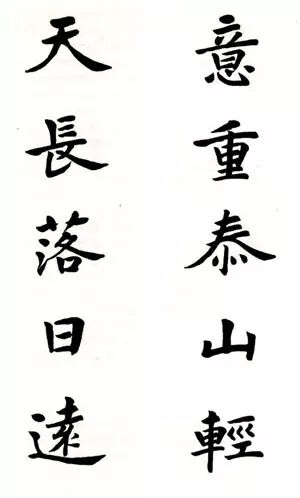 意重泰山輕
天長落日遠